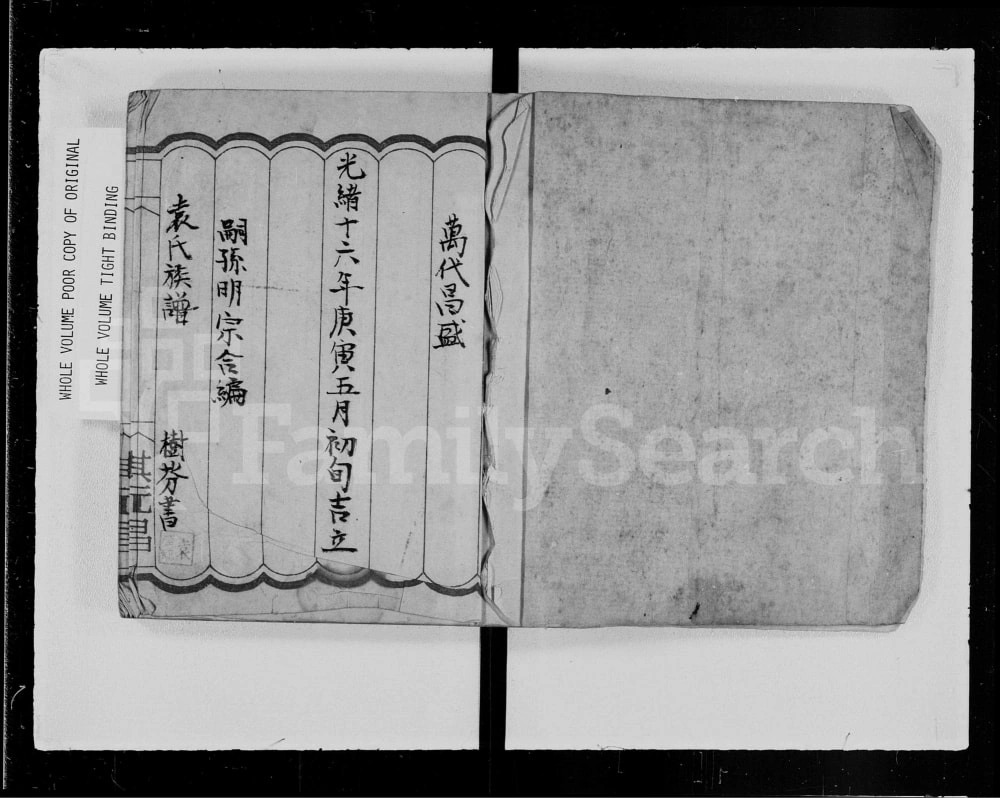 萬代昌盛
光緒十六年庚寅五月初旬吉立
嗣孫明宗合編
袁氏族譜
樹芬書
其元昌
WHOLE VOLUME POOR COPY OF ORIGINAL
WHOLE VOLUME TIGHT BINDING
FamilySearch